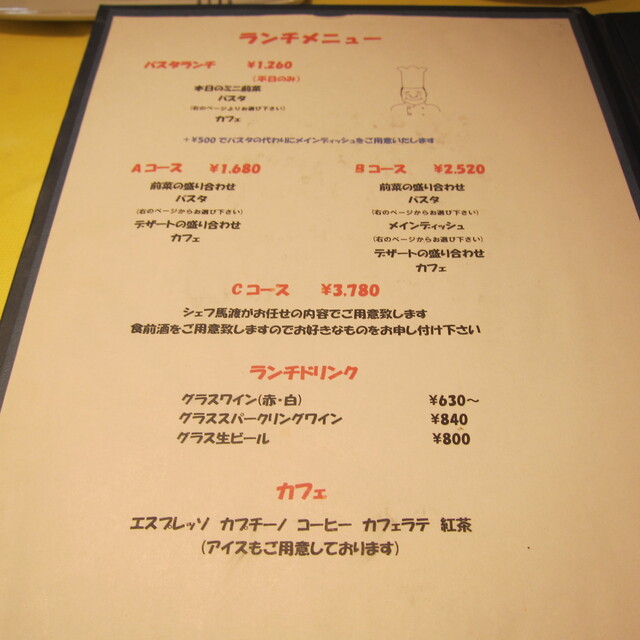 ランチメニュー
パスタランチ ¥1.260
(平日のみ)
本日のミニ前菜
パスタ
(右のページよりお選び下さい)
カフェ
+¥500でパスタの代わりにメインディッシュをご用意いたします
Aコース ¥1.680
前菜の盛り合わせ
パスタ
(右のページからお選び下さい)
デザートの盛り合わせ
カフェ
Bコース ¥2.520
前菜の盛り合わせ
パスタ
(右のページからお選び下さい)
メインディッシュ
(右のページからお選び下さい)
デザートの盛り合わせ
カフェ
Cコース ¥3.780
シェフ馬渡がお任せの内容でご用意致します
食前酒をご用意致しますのでお好きなものをお申し付け下さい
ランチドリンク
グラスワイン(赤・白) ¥630〜
グラススパークリングワイン ¥840
グラス生ビール ¥800
カフェ
エスプレッソ カプチーノ コーヒー カフェラテ 紅茶
(アイスもご用意しております)